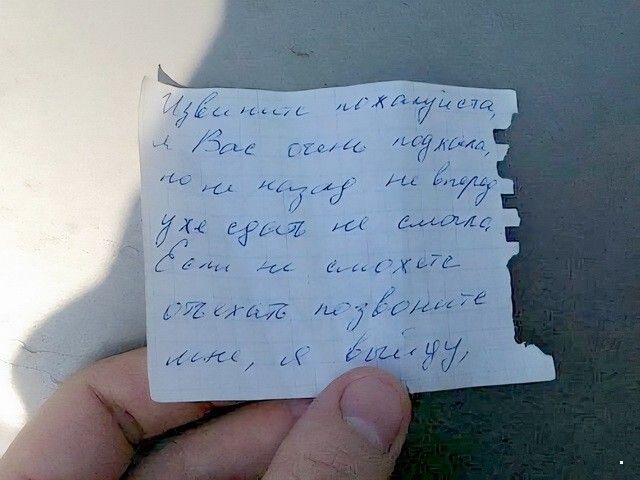 Извините пожалуйста,
я Вас очень поджала,
но не назад не вперед
уже сдать не смогла,
Если не сможете
отъехать позвоните
мне, я выйду,